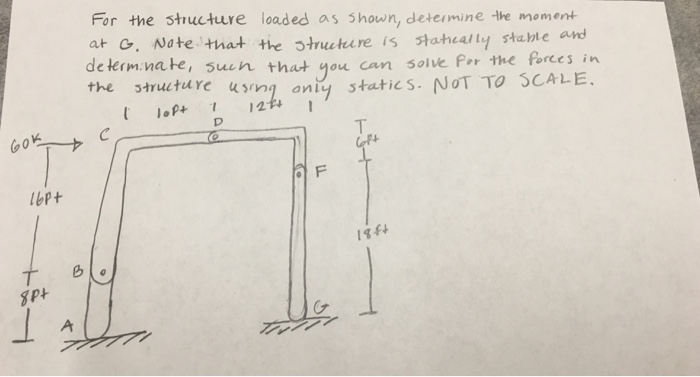 For the structure loaded as shown, determine the moment
at G. Note that the structure is statically stable and
determinate, such that you can solve for the forces in
the structure using only statics. NOT TO SCALE.
10ft 12ft
D
60k C
T
6ft
F
16ft
18ft
B
8ft
G
A